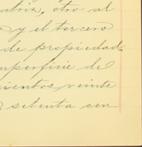 otro al
y el tercero
de propiedad
uperficie de
cientos veinte
setenta cen